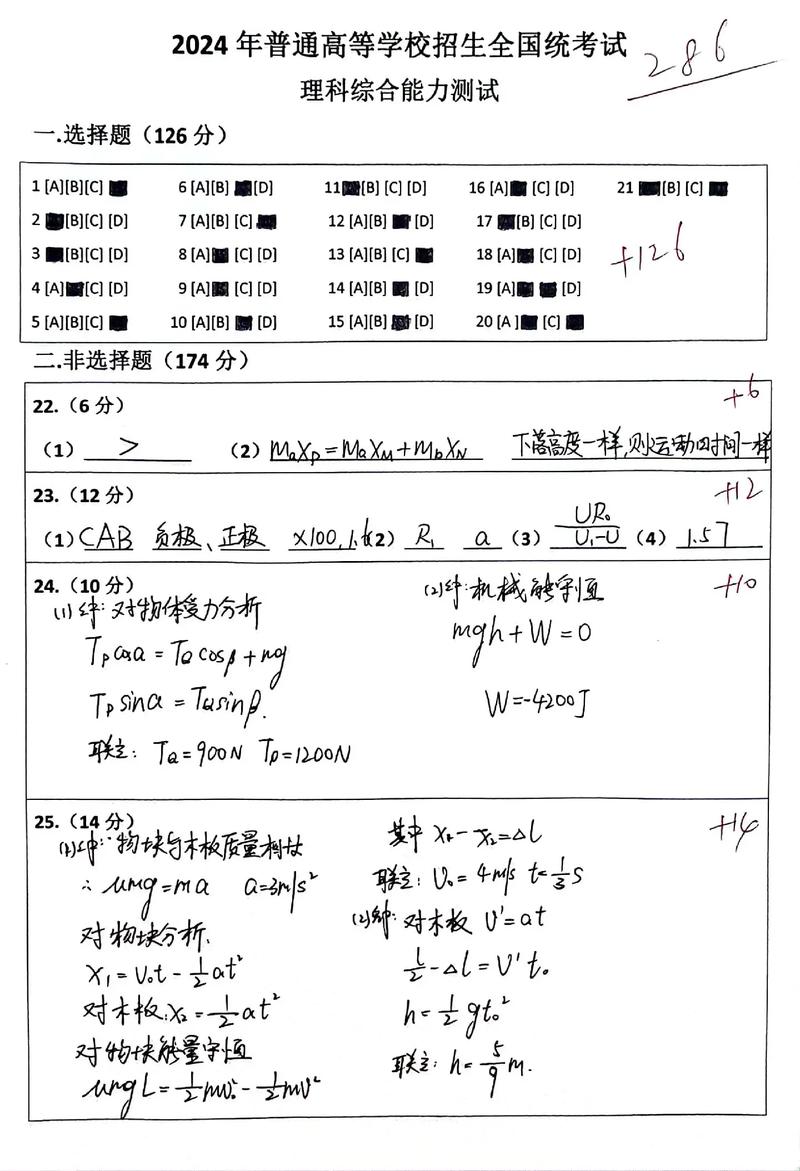 2024 年普通高等学校招生全国统考试
286
理科综合能力测试
一.选择题（126 分）
1 [A][B][C] 6 [A][B] [D] 11 [B] [C] [D] 16 [A] [C] [D] 21 [B] [C]
2 [B][C] [D] 7 [A][B] [C] 12 [A][B] [D] 17 [B] [C] [D]
3 [B][C] [D] 8 [A] [C] [D] 13 [A][B] [C] 18 [A] [C] [D]
+126
4 [A] [C] [D] 9 [A] [C] [D] 14 [A][B] [D] 19 [A] [D]
5 [A][B][C] 10 [A][B] [D] 15 [A][B] [D] 20 [A ] [C]
二.非选择题（174 分）
22.（6 分） +6
（1） > （2） maxP=maxM+mbxN 下落高度一样,则运动时间一样
23.（12 分） +12
（1）CAB 负极、正极 ×100, 1.1k（2） R₁ a （3） UR₀/(U₁-U) （4） 1.57
24.（10 分） +10
(1)解:对物体受力分析
TPcosα = TQcosβ + mg
TPsinα = TQsinβ.
联立: TQ=900N TP=1200N
(2)解:机械能守恒
mgh+W=0
W=-4200J
25.（14 分） +14
(1)解:∵物块与木板质量相等
∴ μmg=ma a=3m/s²
对物块分析.
x₁=v₀t-½at²
对木板:x₂=½at²
对物块能量守恒
μmgL=½mv₀²-½mv²
其中 x₁-x₂=△l
联立: v₀=4m/s t=⅓s
(2)解:对木板 v'=at
l/2-△l=v't₀
h=½gt₀²
联立: h=5/9m.